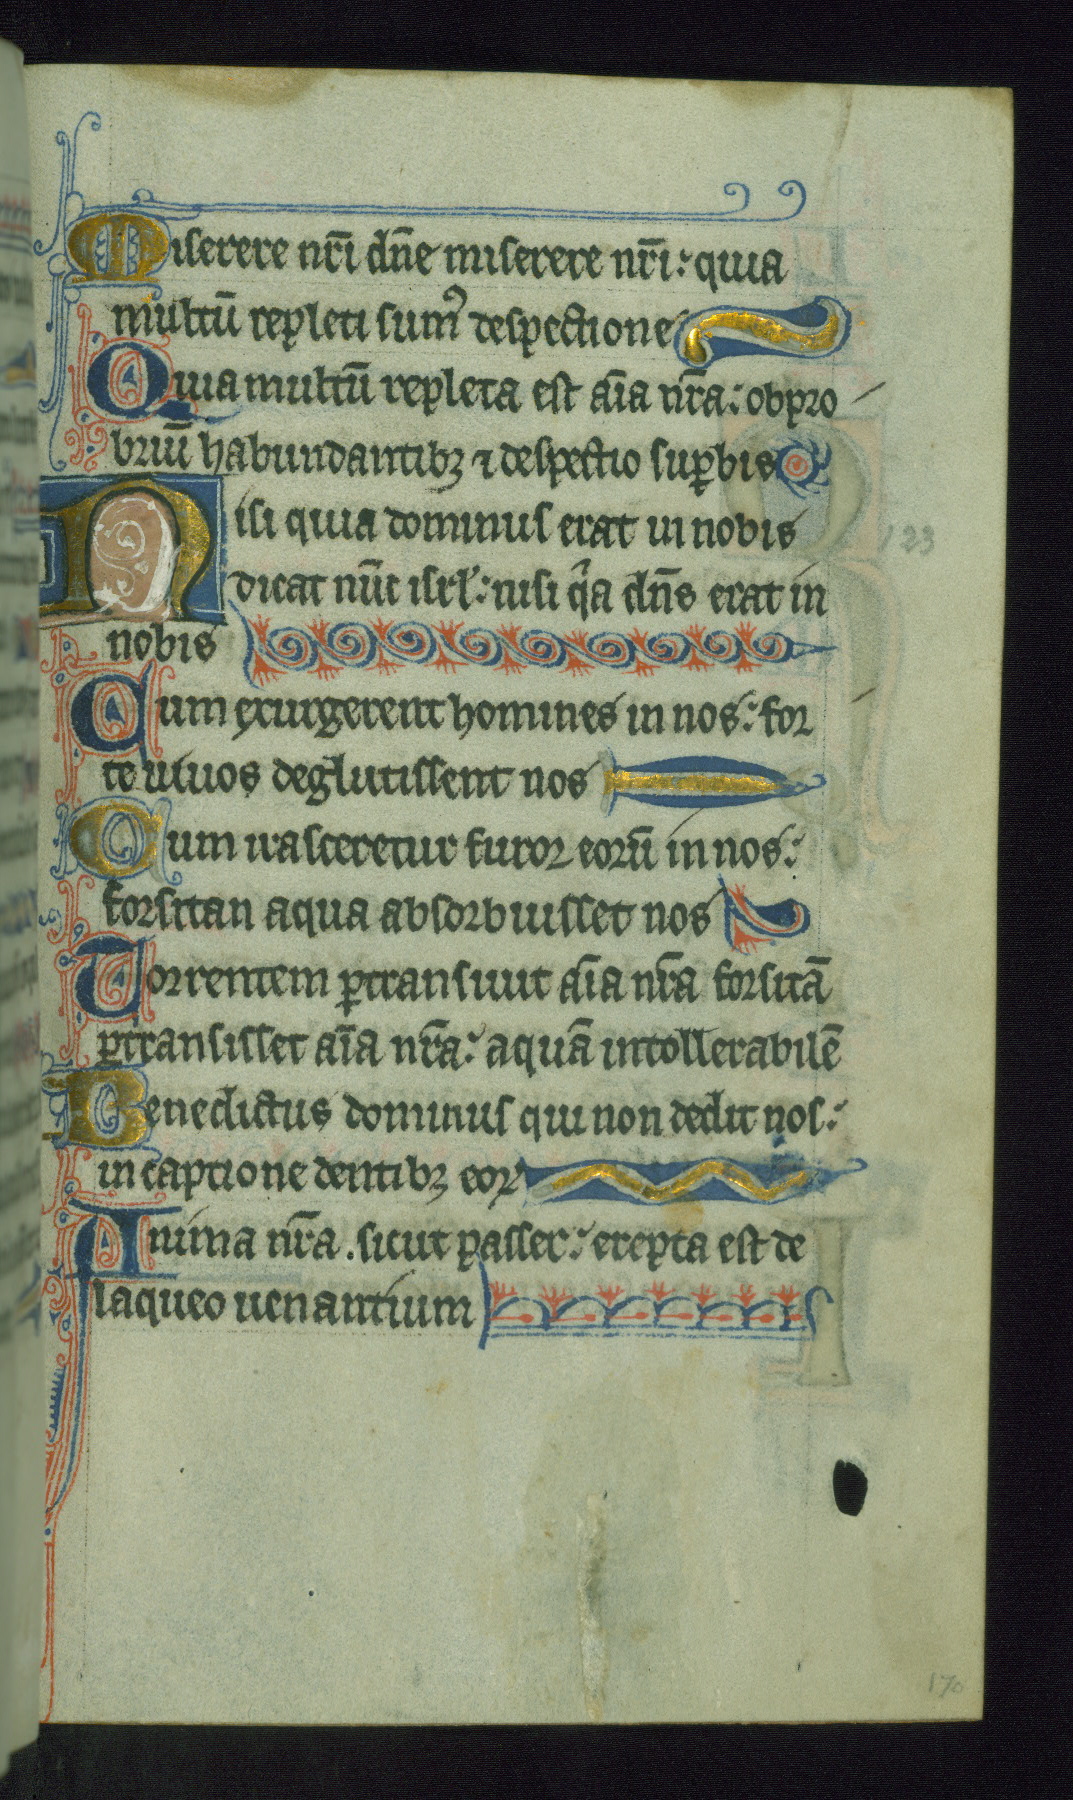 Miserere nr̄i dn̄e miserere nr̄i: quia
multū repleti sumꝰ despectione
Quia multū repleta est aīa nr̄a: obpro
briū habundantibꝫ ⁊ despectio suꝑbis
Nisi quia dominus erat in nobis
123
dicat nūc isrl̄: nisi qͥa dn̄s erat in
nobis
Cum exurgerent homines in nos: for
te uiuos deglutissent nos
Cum irasceretur furor eorū in nos:
forsitan aqua absorbuisset nos
Torrentem ꝑtransiuit aīa nr̄a forsitā
ꝑtransisset aīa nr̄a: aquā intollerabilē
Benedictus dominus qui non dedit nos:
in captione dentibꝫ eoꝝ
Anima nr̄a . sicut passer: erepta est de
laqueo uenantium
170